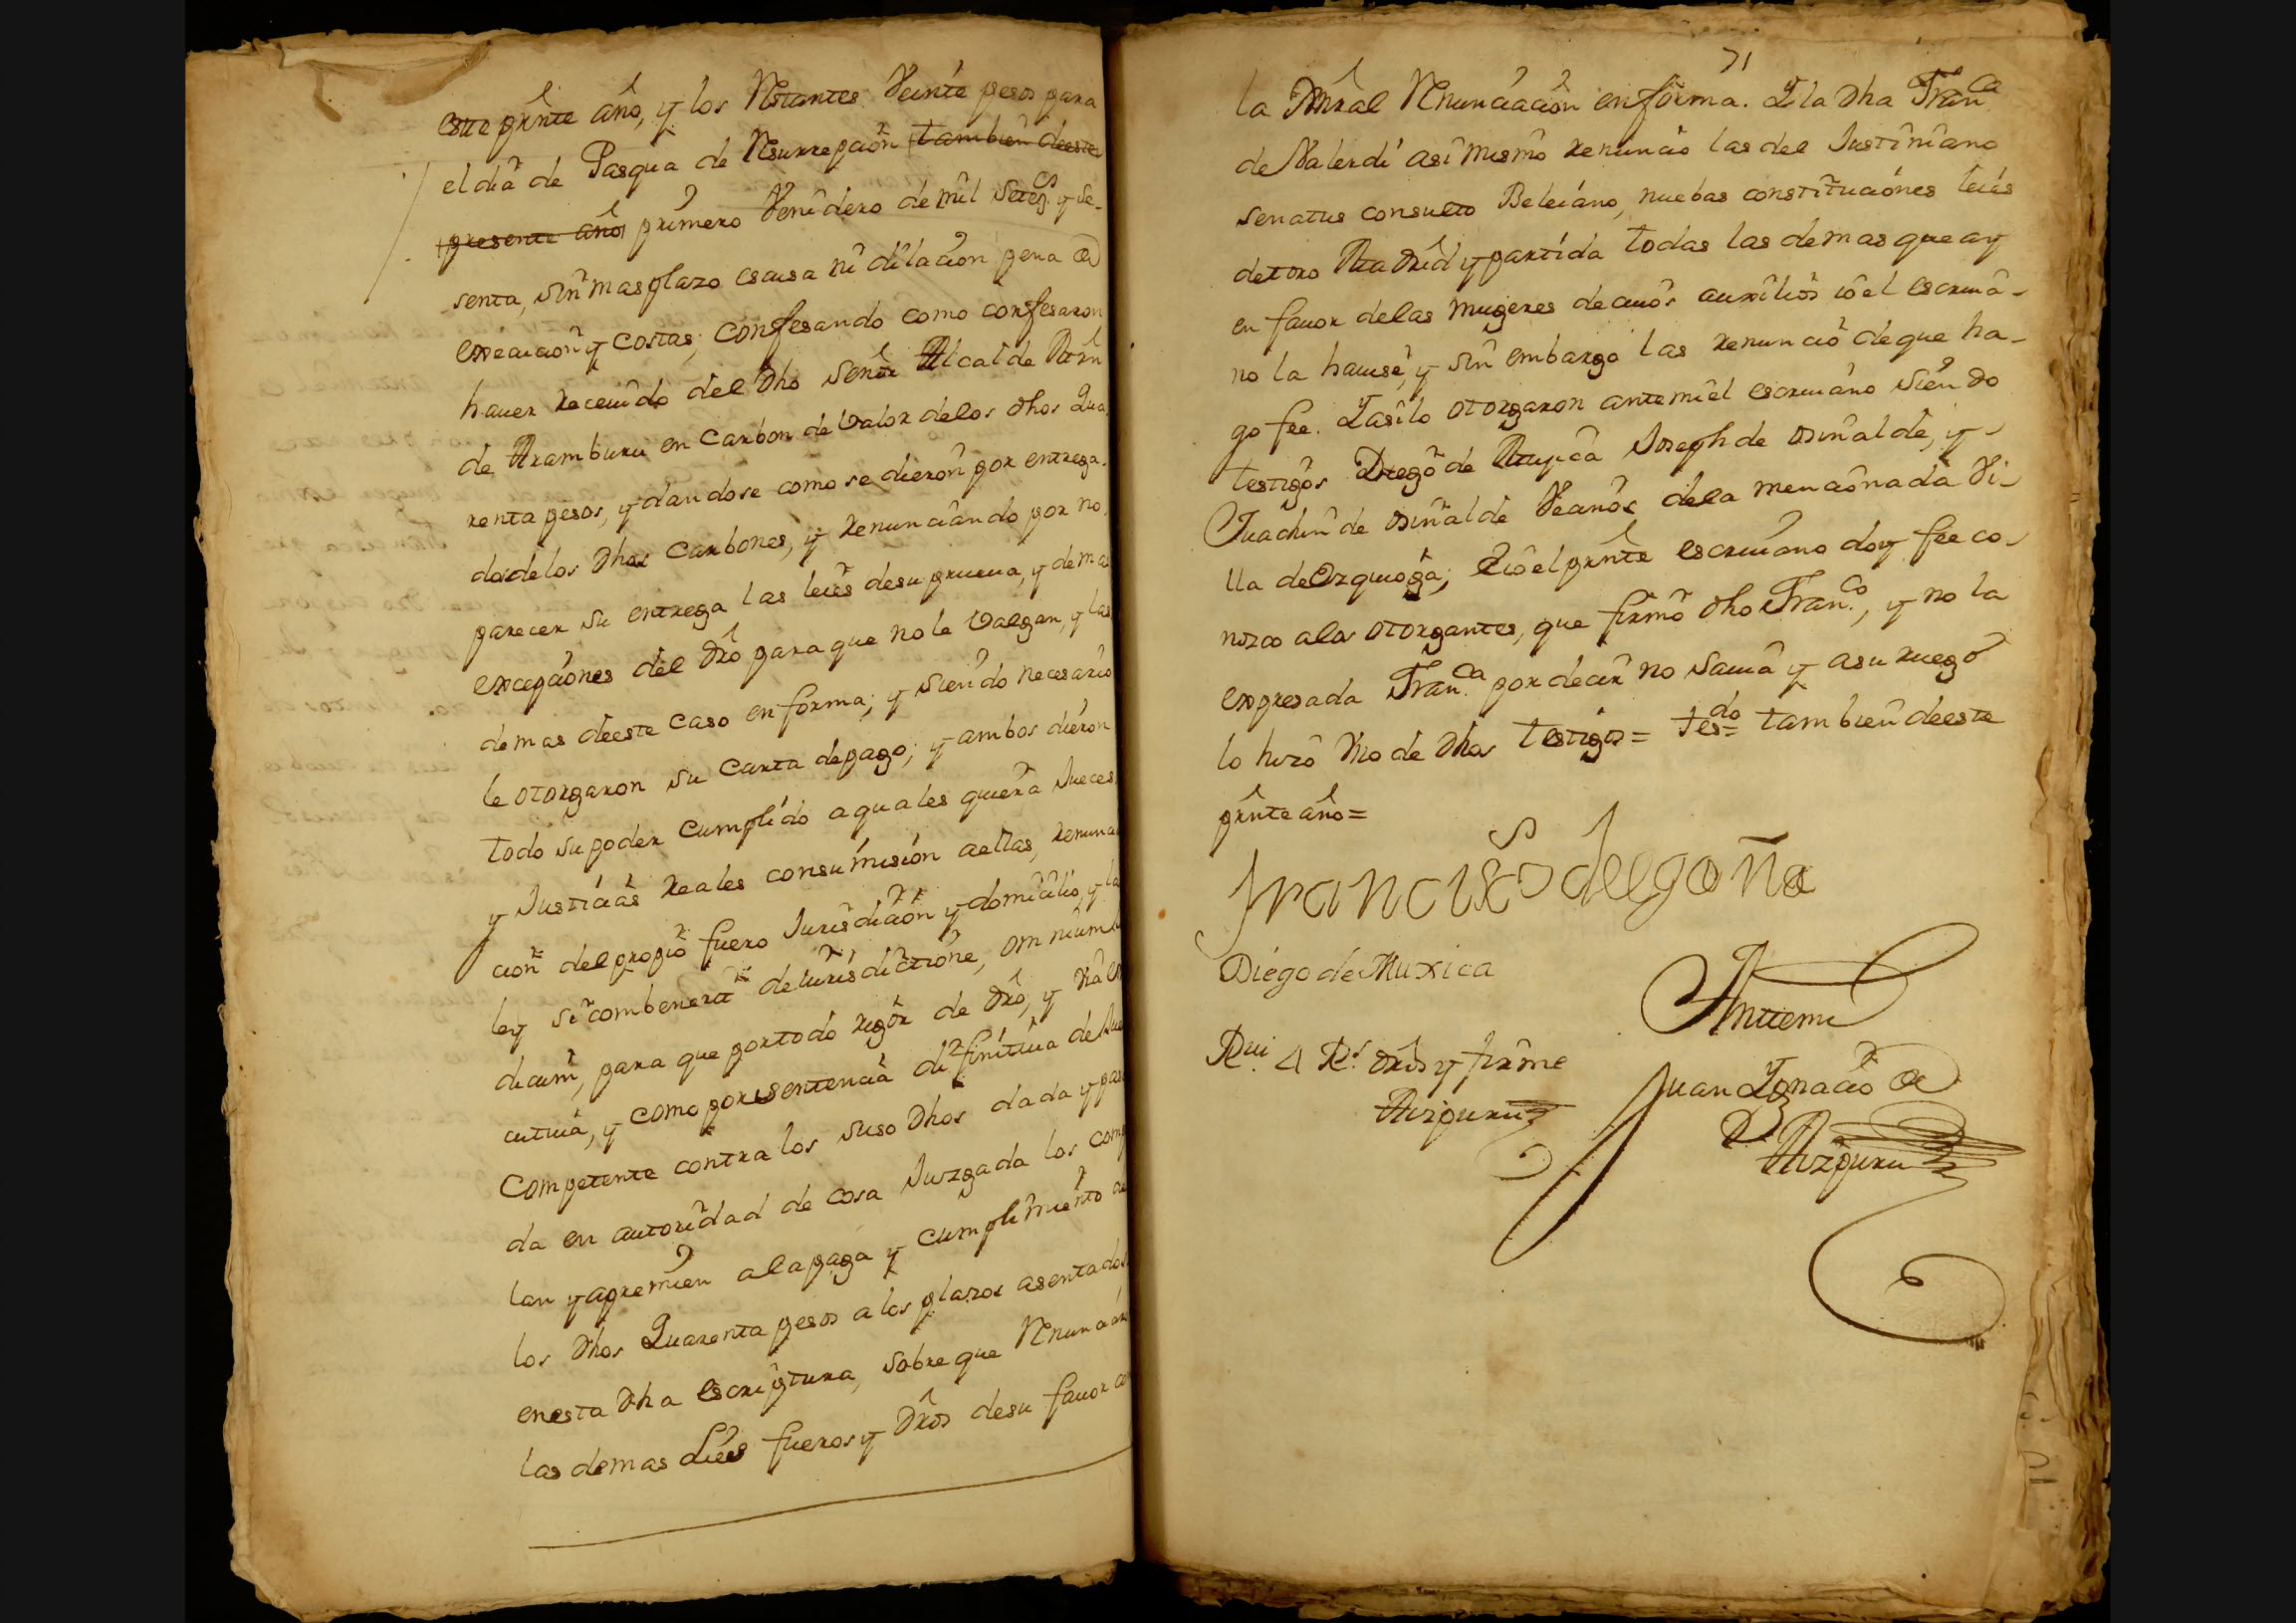 este presnte año, y los Restantes Veinte pesos para
el dia de Pasqua de Resurrepcion tambien deeste
presente año primero Venidero de mil seteCs. y se-
senta, sin mas plazo escusa ni dilacion pena de
execucion y costas; confesando como confesaron
hauer receuido del dho señor Alcalde Mrn
de Aramburu en Carbon de Valor delos dhos Qua
renta pesos, y dandose como se dieron por entrega-
dos delos dhos Carbones, y renunciando por no
parecer su entrega las leies desu prueua, y demas
excepciones del dro para que no le Valgan, y las
demas deeste Caso en forma; y siendo necesario
le otorgaron su Carta depago; y ambos dieron
todo su poder Cumplido a quales quiera Jueces
y Justicias Reales consumision aellas, renuncia
cion del propio fuero Jurisdicion y domicilio, y la
ley si combenerit de Jurisdictione, omnium Ju
dicum, para que por todo rigor de dro, y via exe
cutiua, y como por sentencia difinitiua de Juez
Competente contra los suso dhos dada y pasa
da en autoridad de cosa Juzgada los compe
lan y apremien ala paga y cumplimiento de
los dhos Quarenta pesos a los plazos asentados
enesta dha escriptura, sobre que Renunciaron
las demas Leies fueros y dros desu fauor con
71
la Gnral Renunciacion en forma. Y la dha Franca
de Valerdi asi mismo renuncio las del Justiniano
senatus consulto Beleiano, nuebas constituciones leies
detoro Madrid y partida todas las demas que ay
en fauor delas mugeres de cuios auxilios io el escriua-
no la hauise, y sin embargo las renuncio de que ha-
go fee. Y asi lo otorgaron ante mi el escriuano siendo
testigos Diego de Mugica Joseph de osinalde, y
Juachin de osinalde Vecinos dela mencionada Vi-
lla de Ozquioga; E io el presnte escriuano doy fee co-
nozco alos otorgantes, que firmo dho Franco, y no la
expresada Franca por decir no sauia y asu ruego
lo hizo Vno de dhos testigos = tesdo = tambien deeste
prnte año =
Francisco delgoña
Diego de Muxica
Anttemi
Rui. 4 Rs. dros y firme
Aizpuru
Juan Ygnacio de
Aizpuru